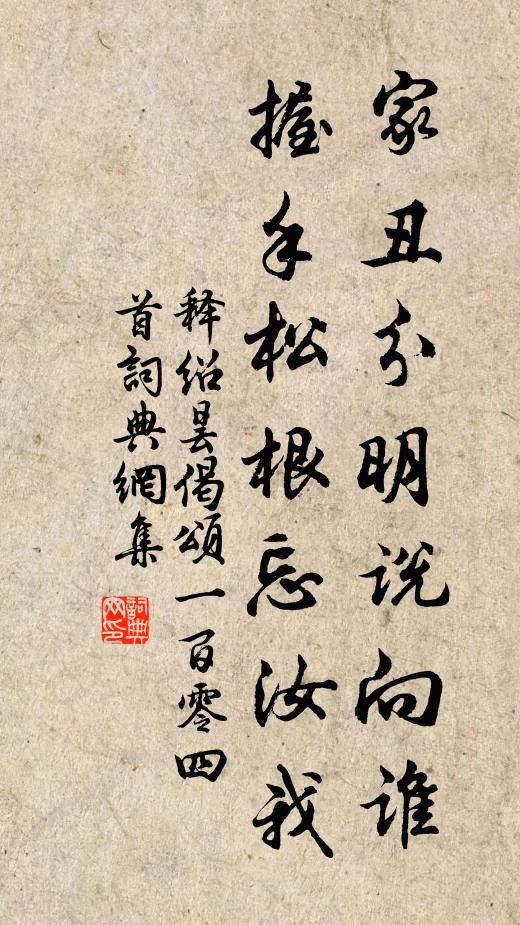 家丑分明说向谁
握手松根忘汝我
释绍昙偈頌一百零四
首詞典網集
詞典
网印